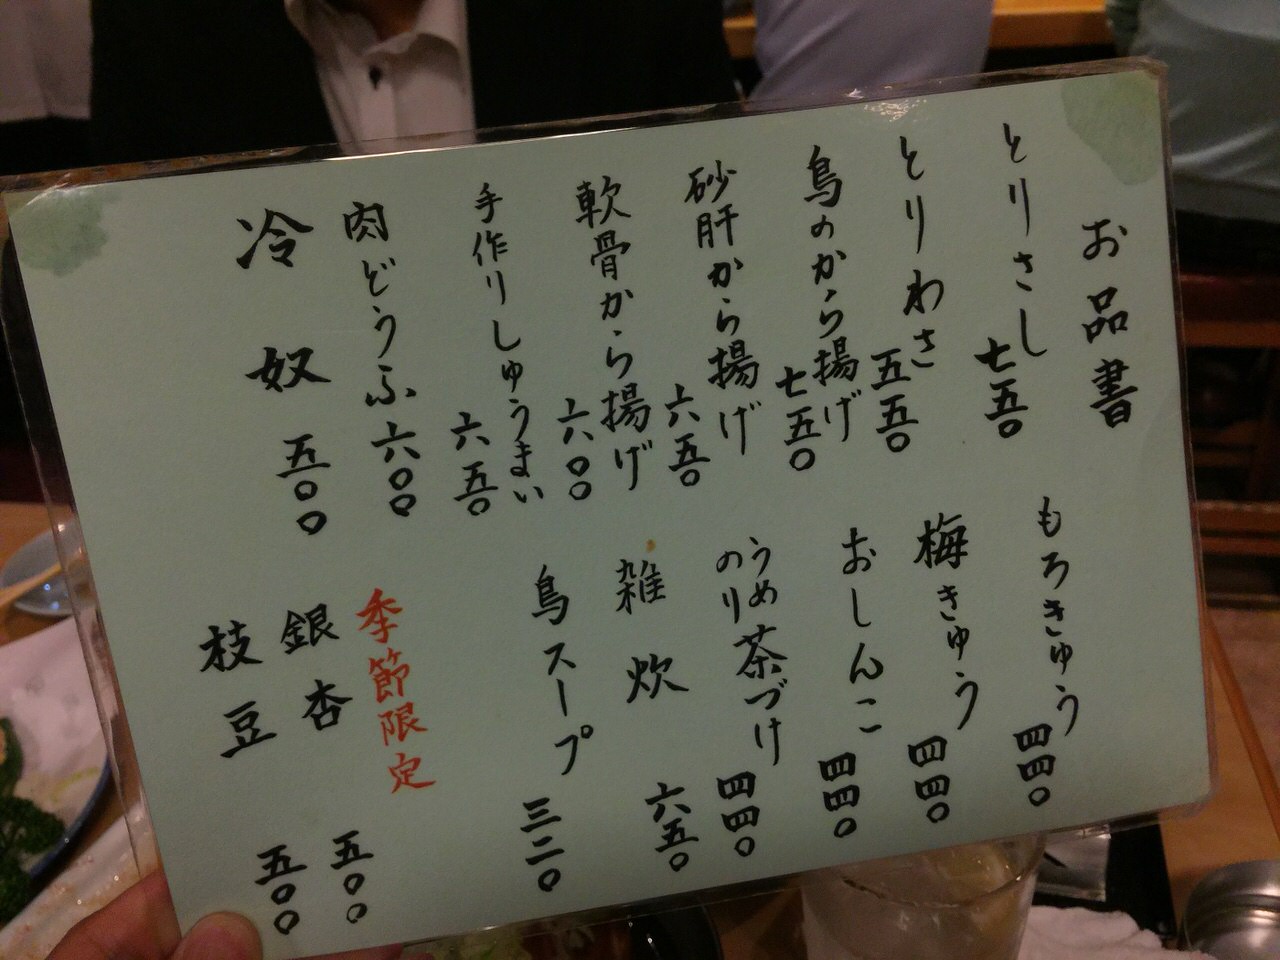 お品書
とりさし 七五〇
とりわさ 五五〇
鳥のから揚げ 七五〇
砂肝から揚げ 六五〇
軟骨から揚げ 六〇〇
手作りしゅうまい 六五〇
肉どうふ 六〇〇
冷奴 五〇〇
もろきゅう 四四〇
梅きゅう 四四〇
おしんこ 四四〇
うめ
のり 茶づけ 四四〇
雑炊 六五〇
鳥スープ 三二〇
季節限定
銀杏 五〇〇
枝豆 五〇〇